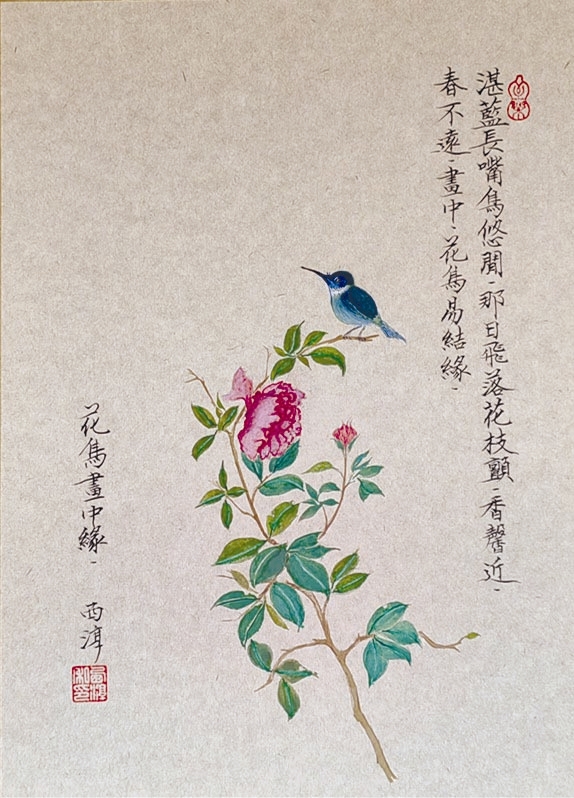 湛藍長嘴鳥悠閒、那日飛落花枝顫、香馨近、
春不遠、畫中、花鳥易結緣、
花鳥畫中緣、 西淳